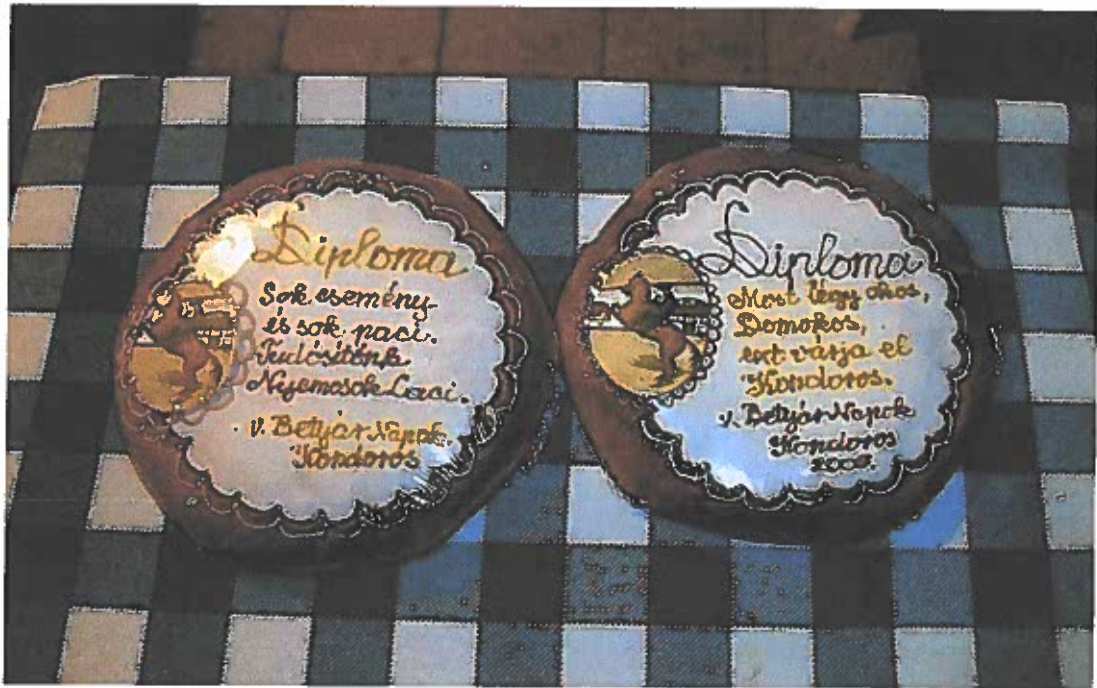 Diploma
Sok esemény
és sok paci.
Tudósítónk
Nyomasok Laci.
V. Betyár Napok,
Kondoros
Diploma
Most légy okos,
Domokos,
ezt várja el
Kondoros.
V. Betyár Napok
Kondoros